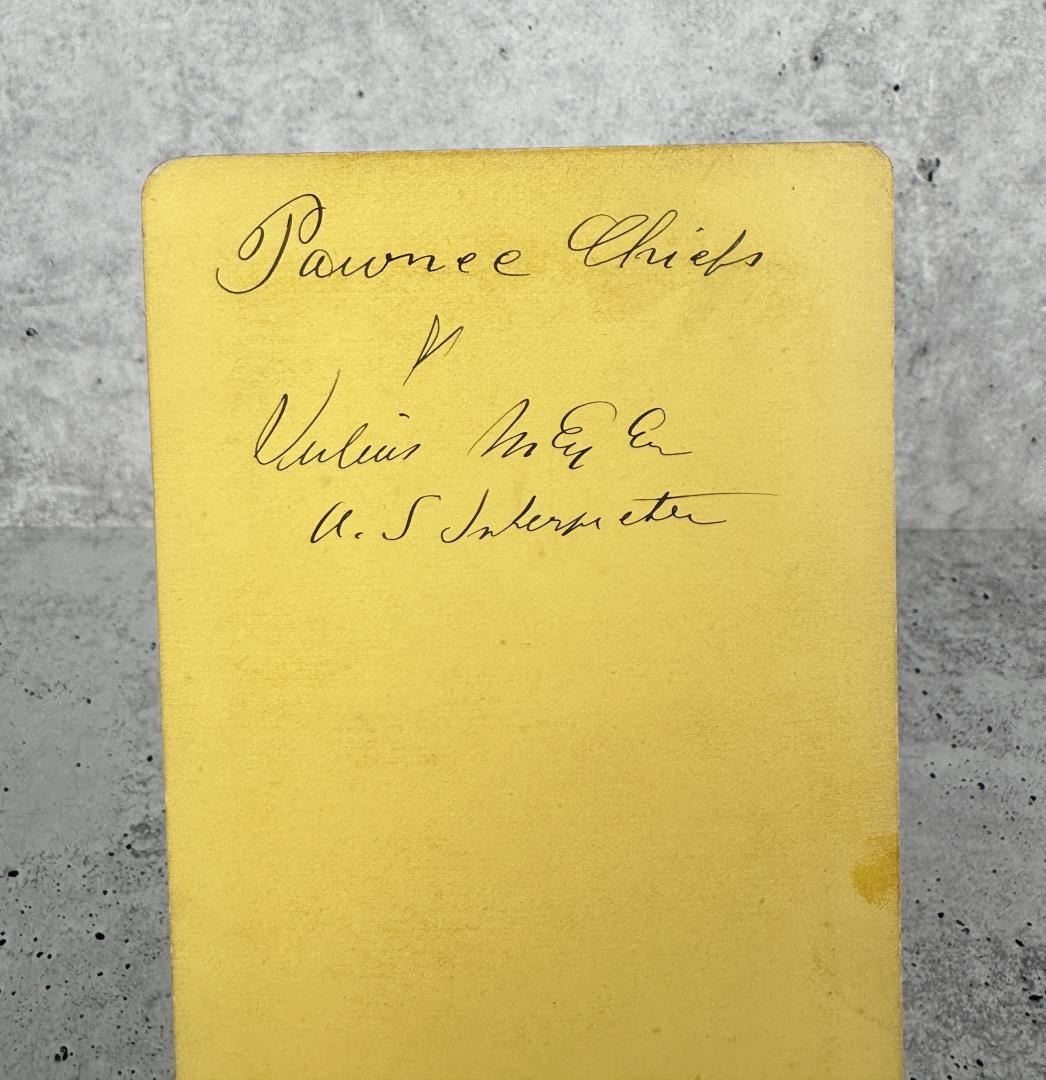 Pawnee Chiefs
&
Julius MEyEr
U. S Interpreter